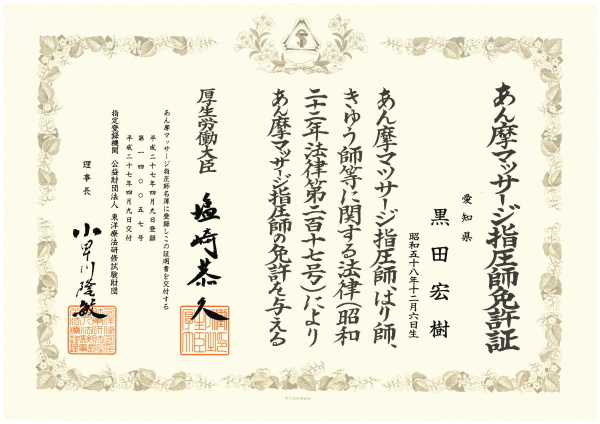 あん摩マッサージ指圧師免許証
愛知県
黒田宏樹
昭和五十八年十二月六日生
あん摩マツサージ指圧師、はり師、
きゆう師等に関する法律(昭和
二十二年法律第二百十七号)により
あん摩マツサージ指圧師の免許を与える
厚生労働大臣
塩崎恭久
あん摩マッサージ指圧師名簿に登録しこの証明書を交付する
平成二十七年四月九日登録
第一四〇〇五七号
平成二十七年四月九日交付
指定登録機関 公益財団法人 東洋療法研修試験財団
理事長
小早川隆敏